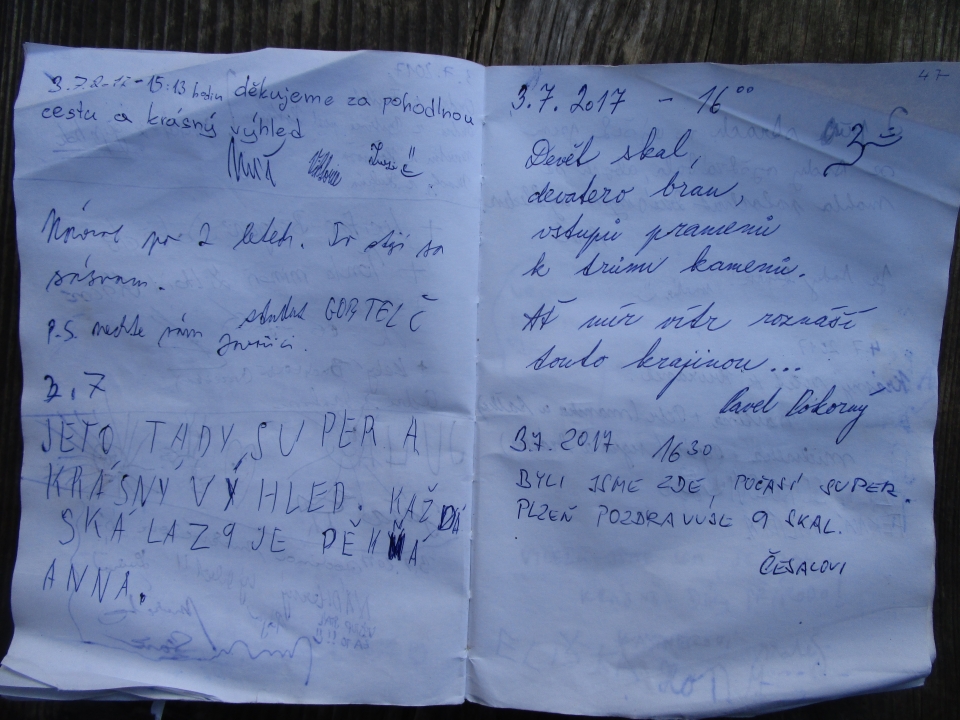 3.7.2017 - 15:13 hodin děkujeme za pohodlnou
cestu a krásný výhled
po 2 letech. To stojí za
P.S. nechte nám
GORTELČ
3.7
JETO TADY SUPER A
KRÁSNÝ VÝHLED. KAŽDÁ
SKÁLA Z 9 JE PĚKNÁ
ANNA.
47
3.7.2017 - 16⁰⁰
Devět skal,
devatero bran,
vstupů pramenů
k trůnu kamenů.
Ať mír vítr roznáší
touto krajinou...
Pavel Pokorný
3.7.2017 1630
BYLI JSME ZDE, POČASÍ SUPER.
PLZEŇ POZDRAVUJE 9 SKAL.
ČESALOVI